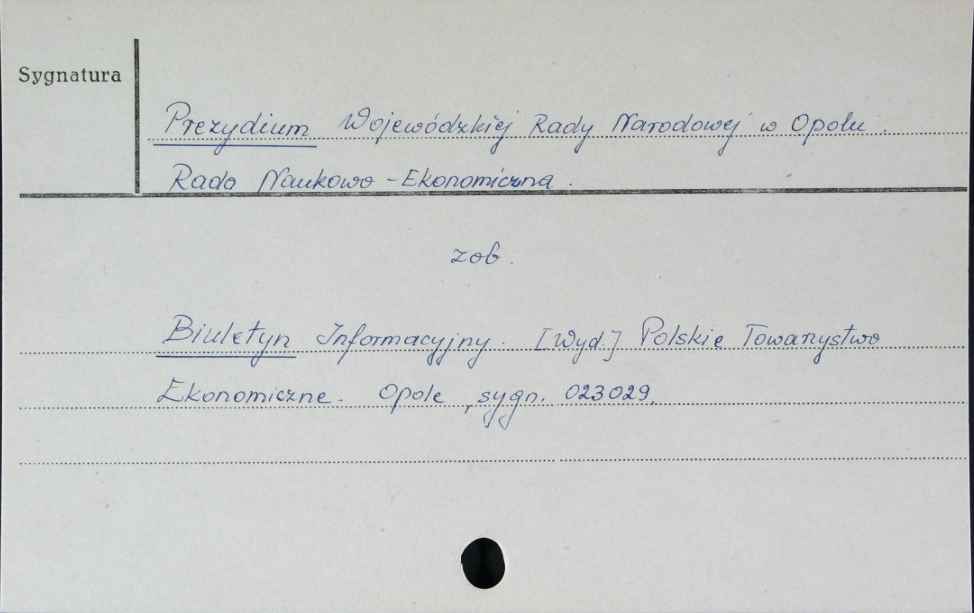 Sygnatura
Prezydium Wojewódzkiej Rady Narodowej w Opolu.
Rada Naukowo-Ekonomiczna.
zob.
Biuletyn Informacyjny. [Wyd.] Polskie Towarzystwo
Ekonomiczne. Opole, sygn. 023029.